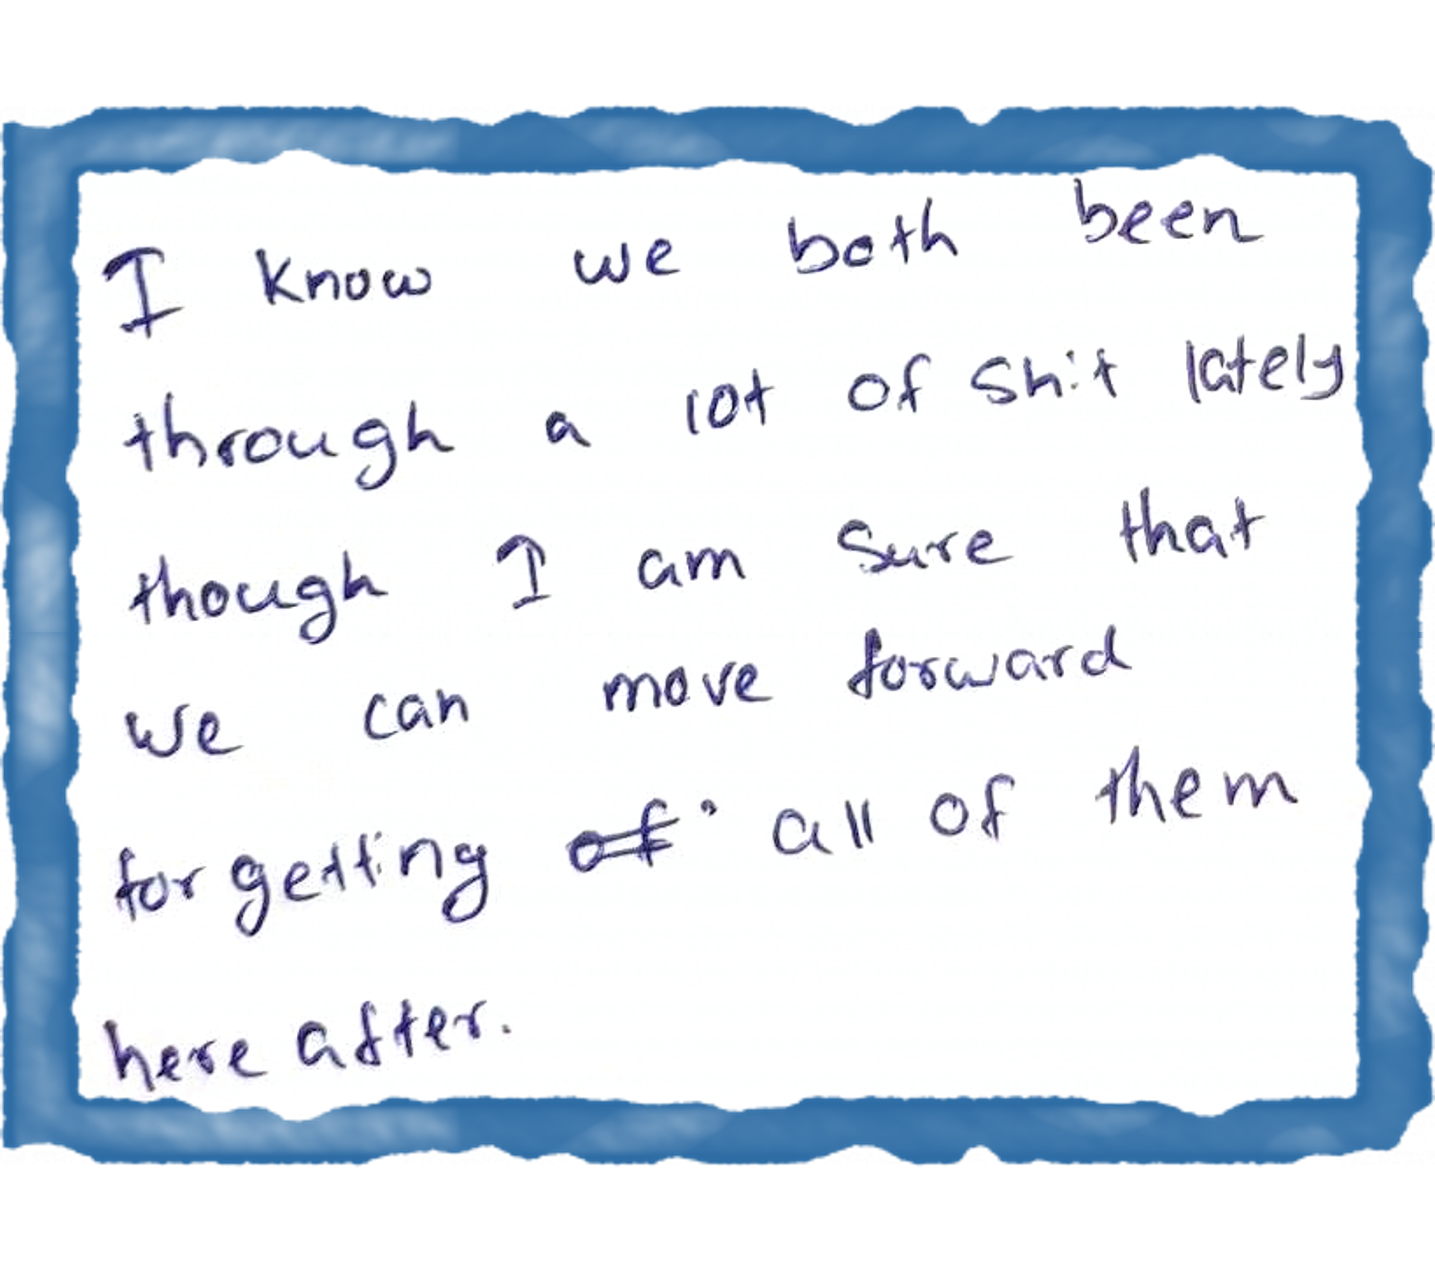 I know we both been
through a lot of shit lately
though I am sure that
we can move forward
forgetting of all of them
here after.